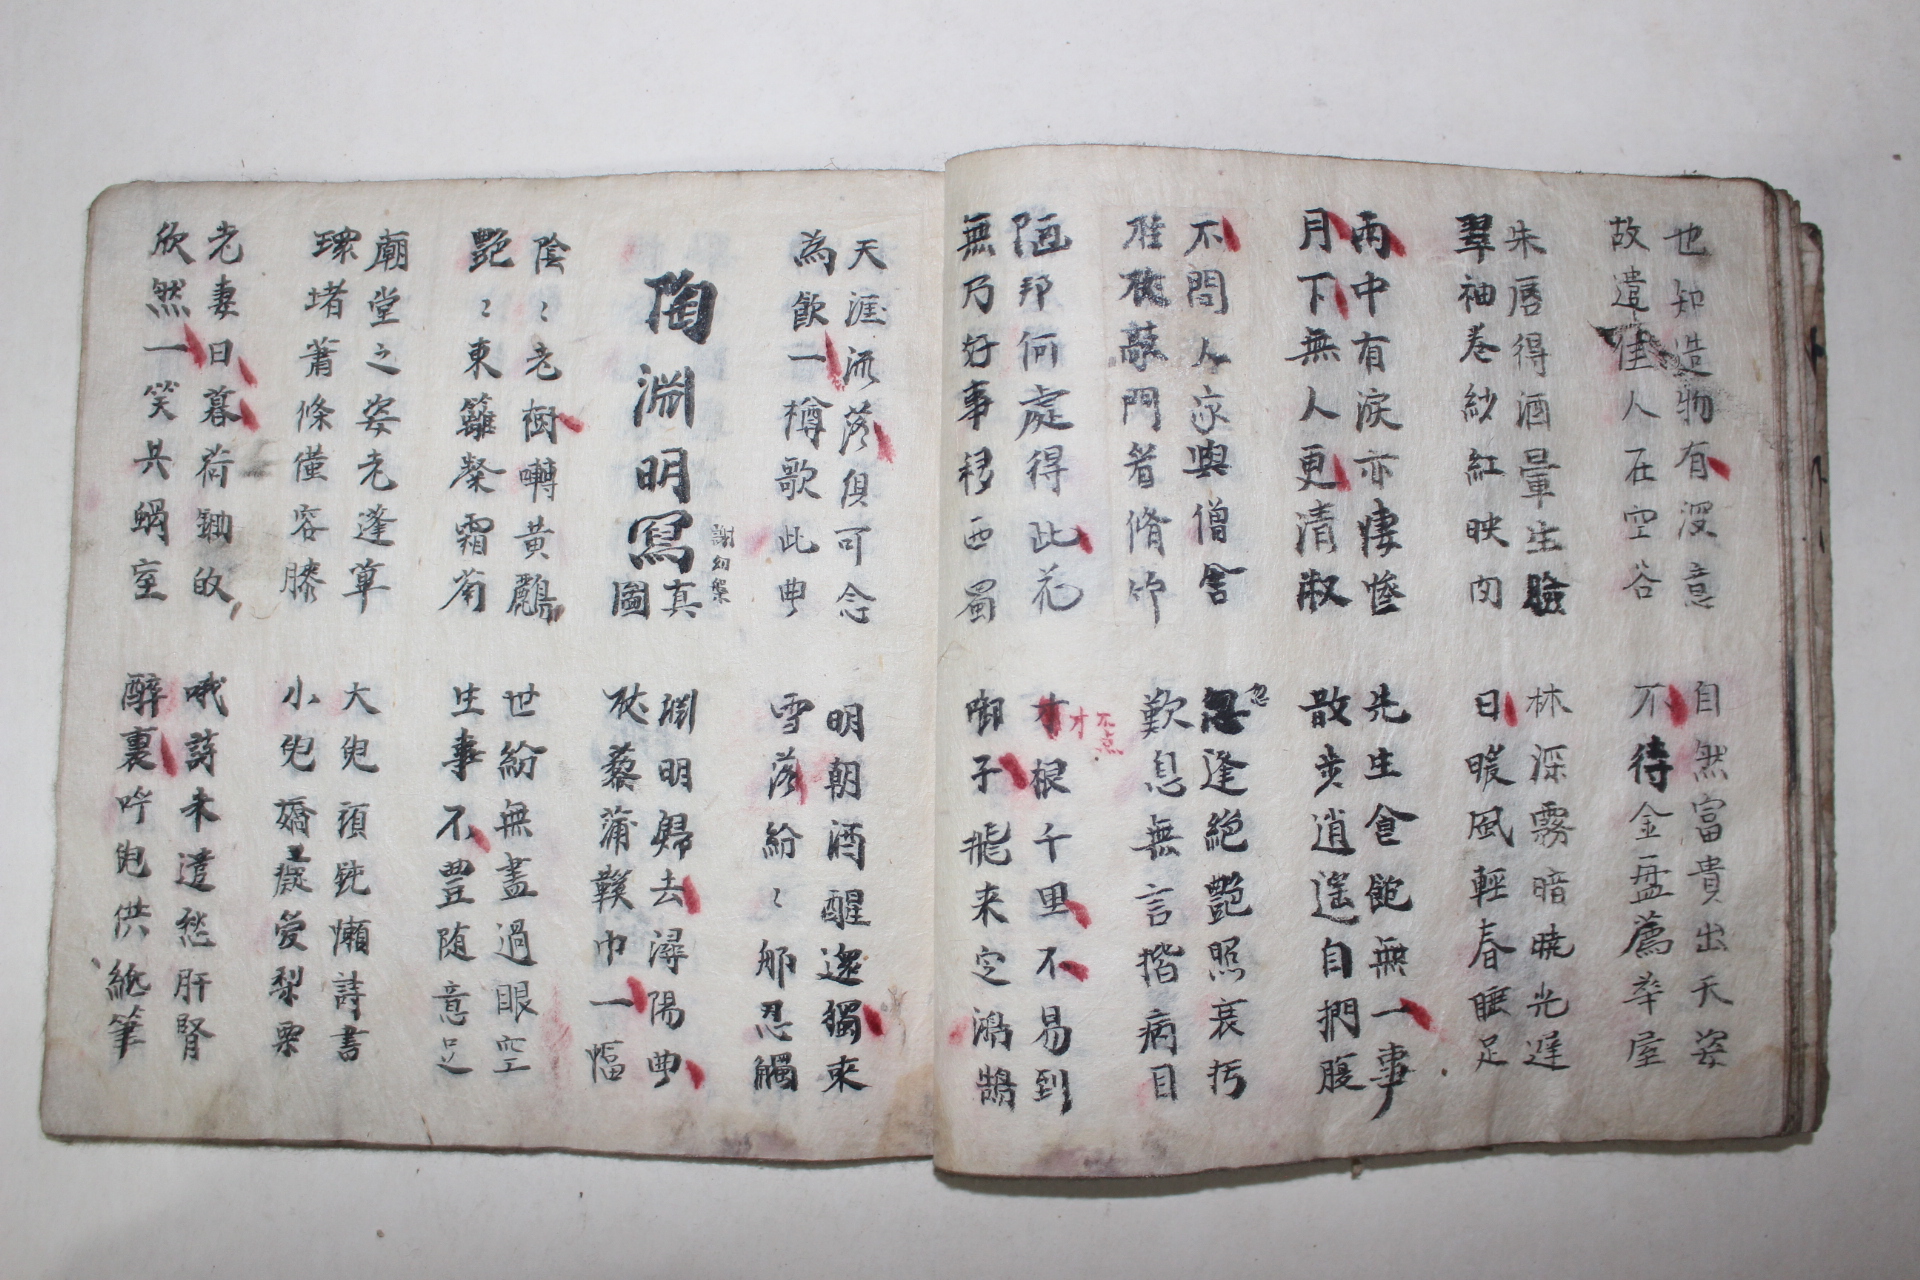 也知造物有深意
故遣佳人在空谷
自然富貴出天姿
不待金盤薦華屋
朱唇得酒暈生臉
翠袖卷紗紅映肉
林深霧暗曉光遲
日暖風輕春睡足
雨中有淚亦悽慘
月下無人更清淑
先生食飽無一事
散步逍遙自捫腹
不問人家與僧舍
拄杖敲門看脩竹
忽
忽逢絕艷照衰朽
歎息無言揩病目
陋邦何處得此花
無乃好事移西蜀
寸根千里不易到
不点
寸
啣子飛来定鴻鵠
天涯流落俱可念
為飲一樽歌此曲
明朝酒醒還獨來
雪落紛〻那忍觸
陶淵明寫真圖
謝幼槃
淵明歸去潯陽曲
杖藜蒲鞋巾一幅
陰〻老樹囀黃鸝
艷〻東籬粲霜菊
世紛無盡過眼空
生事不豐随意足
廟堂之姿老蓬蓽
環堵蕭條僅容膝
大兒頑鈍懶詩書
小兒嬌癡愛梨栗
老妻日暮荷鋤皈
欣然一笑共蝸室
哦詩未遣愁肝腎
醉裏呼兒供紙筆